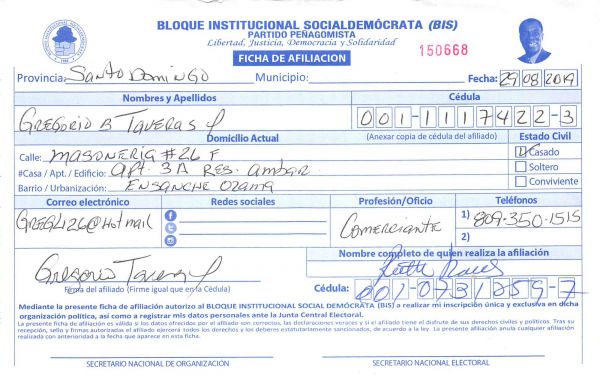 BLOQUE INSTITUCIONAL SOCIALDEMÓCRATA (BIS)
PARTIDO PEÑAGOMISTA
Libertad, Justicia, Democracia y Solidaridad
FICHA DE AFILIACION
150668
Provincia: Santo Domingo Municipio: Fecha: 29 08 2019
Nombres y Apellidos Cédula
Gregorio B Taveras 001-1117422-3
Domicilio Actual (Anexar copia de cédula del afiliado) Estado Civil
Calle: Masoneria #26 F Casado
#Casa / Apt. / Edificio: Apt. 3A Res. Ambar Soltero
Barrio / Urbanización: Ensanche Ozama Conviviente
Correo electrónico Redes sociales Profesión/Oficio Teléfonos
GREGL126@Hotmail Comerciante 1) 809-350-1515
2)
Nombre completo de quien realiza la afiliación
Gregorio Taveras Ruth
Firma del afiliado (Firme igual que en la Cédula) Cédula: 001-0731259-7
Mediante la presente ficha de afiliación autorizo al BLOQUE INSTITUCIONAL SOCIAL DEMÓCRATA (BIS) a realizar mi inscripción única y exclusiva en dicha
organización política, así como a registrar mis datos personales ante la Junta Central Electoral.
La presente ficha de afiliación es válida si los datos ofrecidos por el afiliado son correctos, las declaraciones veraces y si el afiliado tiene el disfrute de sus derechos civiles y políticos. Tras su
recepción, sello y firmas autorizadas el afiliado ejercerá todos los derechos y los deberes estatutariamente sancionados, de acuerdo a la ley. La presente afiliación anula cualquier afiliación
realizada con anterioridad a la fecha que aparece en esta ficha.
SECRETARIO NACIONAL DE ORGANIZACIÓN SECRETARIO NACIONAL ELECTORAL